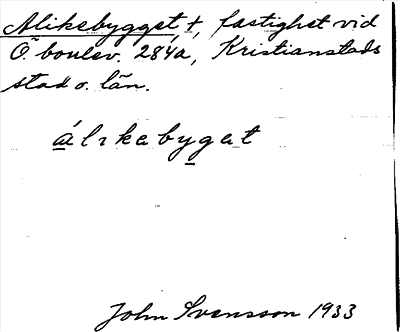 Alikebygget †, fastighet vid
Ö. boulev. 284a, Kristianstads
stad o. län.
álıkebygat
John Svensson 1933